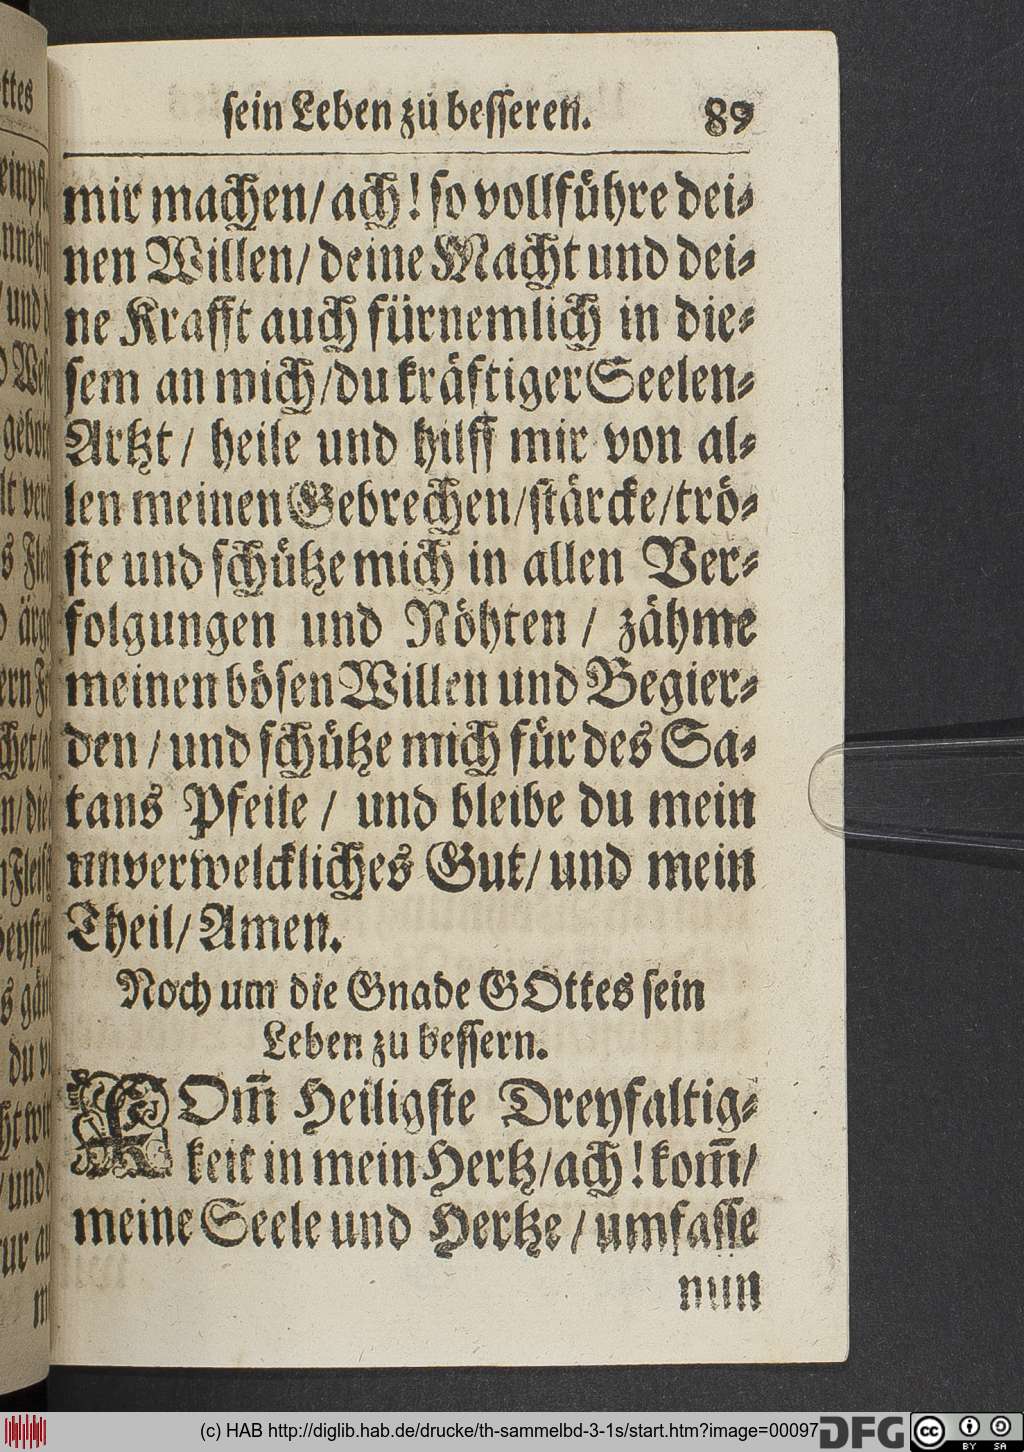 sein Leben zu besseren. 89
mir machen/ ach! so vollführe dei-
nen Willen/ deine Macht und dei-
ne Krafft auch fürnemlich in die-
sem an mich/ du kräftiger Seelen-
Artzt/ heile und hilff mir von al-
len meinen Gebrechen/ stärcke/ trö-
ste und schütze mich in allen Ver-
folgungen und Nöhten / zähme
meinen bösen Willen und Begier-
den / und schütze mich für des Sa-
tans Pfeile / und bleibe du mein
unverwelckliches Gut/ und mein
Theil/ Amen.
Noch um die Gnade GOttes sein
Leben zu bessern.
KOm̃ Heiligste Dreyfaltig-
keit in mein Hertz/ ach! kom̃/
meine Seele und Hertze / umfasse
nun
(c) HAB http://diglib.hab.de/drucke/th-sammelbd-3-1s/start.htm?image=00097
DFG
cc BY SA